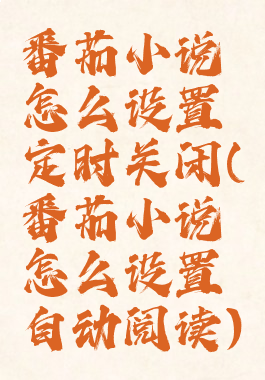 番茄小说
怎么设置
定时关闭(
番茄小说
怎么设置
自动阅读)